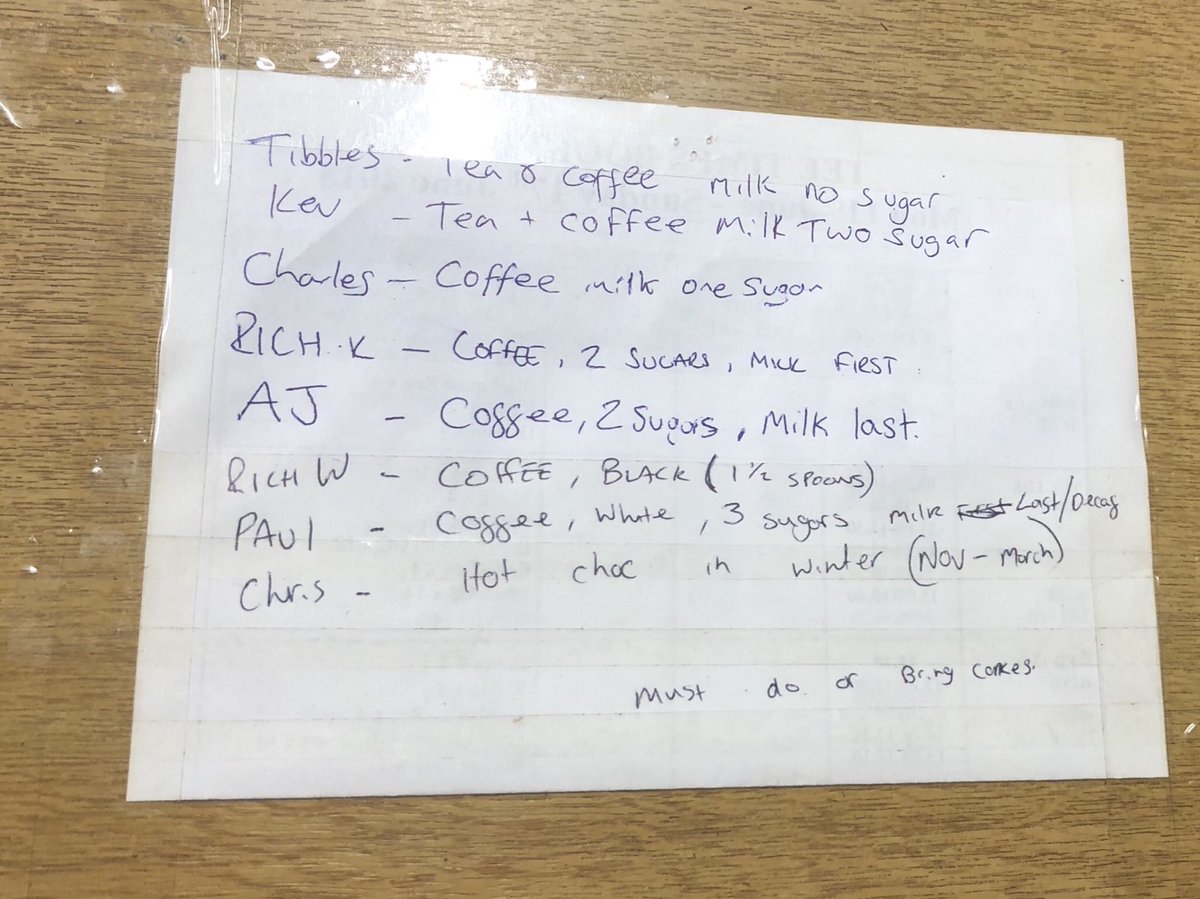 Tibbles - Tea & coffee milk no sugar
Kev - Tea + coffee milk Two sugar
Charles - Coffee milk one sugar
RICH.K - COFFEE, 2 SUGARS, MILK FIRST.
AJ - Coffee, 2 Sugars, Milk last.
RICH W - COFFEE, BLACK (1 1/2 SPOONS)
PAUl - Coffee, White, 3 sugars milk Last/Decaf
Chris - Hot choc in winter (Nov - March)
Must do or Bring cakes.